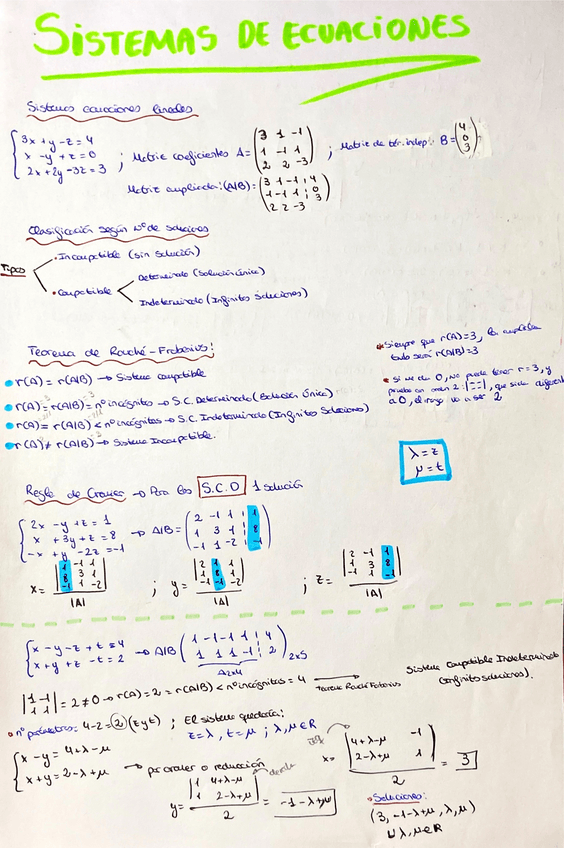 SISTEMAS DE ECUACIONES
Sistemas ecuaciones lineales
3x + y - z = 4
x - y + z = 0
2x + 2y - 3z = 3
; Matriz coeficientes A = (3 1 -1 / 1 -1 1 / 2 2 -3) ; Matriz de tér. indep: B = (4 / 0 / 3)
Matriz ampliada: (A/B) = (3 1 -1 | 4 / 1 -1 1 | 0 / 2 2 -3 | 3)
Clasificación según nº de soluciones
Tipos
• Incompatible (sin solución)
• Compatible
Determinado (solución única)
Indeterminado (Infinitas soluciones)
Teorema de Rouché-Frobenius:
r(A) = r(A/B) → Sistema compatible
r(A) = r(A/B) = nº incógnitas → S.C. Determinado (Solución Única)
r(A) = r(A/B) < nº incógnitas → S.C. Indeterminado (Infinitas Soluciones)
r(A) ≠ r(A/B) → Sistema Incompatible.
* Siempre que r(A)=3, la ampliada
será r(A/B)=3
* si me da 0, no puede tener r=3, y
pruebo con orden 2:
a 0, el rango va a ser 2
λ = z
μ = t
Regla de Cramer → Para los S.C.D 1 solución
2x - y + z = 1
x + 3y + z = 8
-x + y - 2z = -1
→ A/B = (2 -1 1 | 1 / 1 3 1 | 8 / -1 1 -2 | -1)
x = |1 -1 1 / 8 3 1 / -1 1 -2| / |A| ; y = |2 1 1 / 1 8 1 / -1 -1 -2| / |A| ; z = |2 -1 1 / 1 3 8 / -1 1 -1| / |A|
x - y - z + t = 4
x + y + z - t = 2
→ A/B (1 -1 -1 1 | 4 / 1 1 1 -1 | 2) 2x5
A 2x4
|1 -1 / 1 1| = 2 ≠ 0 → r(A) = 2 = r(A/B) < nº incógnitas = 4 → Sistema Compatible Indeterminado
teorema Rouché Frobenius (infinitas soluciones).
• nº parámetros: 4-2 = 2 (z y t) ; El sistema quedaría:
z = λ, t = μ ; λ, μ ∈ R
x - y = 4 + λ - μ
x + y = 2 - λ + μ
→ por cramer o reducción
x = |4+λ-μ -1 / 2-λ+μ 1| / 2 = 3
y = |1 4+λ-μ / 1 2-λ+μ| / 2 = -1-λ+μ
• Soluciones:
(3, -1-λ+μ, λ, μ)
∀ λ, μ ∈ R